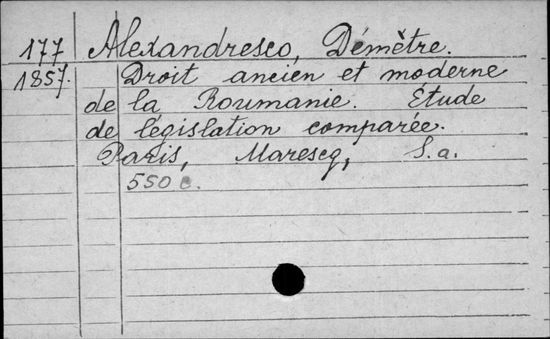 177 Alexandresco, Démètre.
1857. Droit ancien et moderne
de la Roumanie. Étude
de législation comparée.
Paris, Marescq, S.a.
550 c.